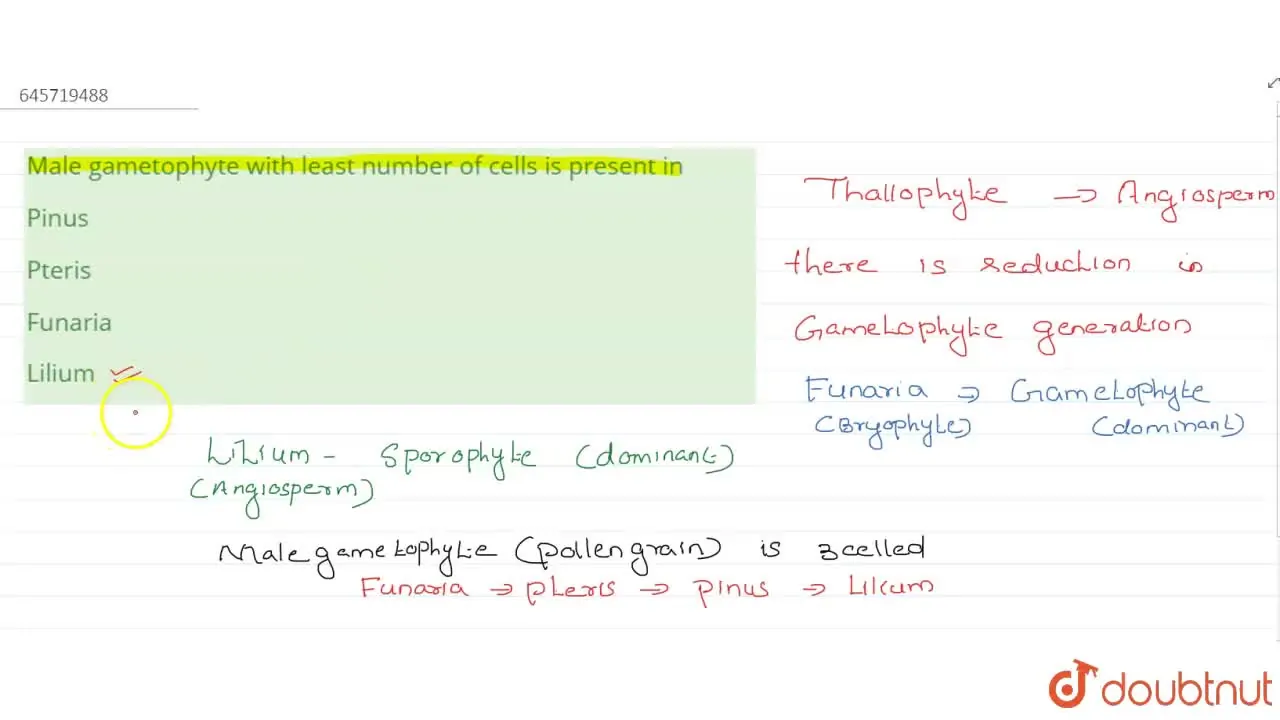 645719488
Male gametophyte with least number of cells is present in
Pinus
Pteris
Funaria
Lilium
Thallophyte → Angiosperm
there is reduction in
Gametophyte generation
Funaria → Gametophyte
(Bryophyte) (dominant)
Lilium - Sporophyte (dominant)
(Angiosperm)
Male gametophyte (pollengrain) is 3celled
Funaria → pteris → pinus → Lilium
doubtnut